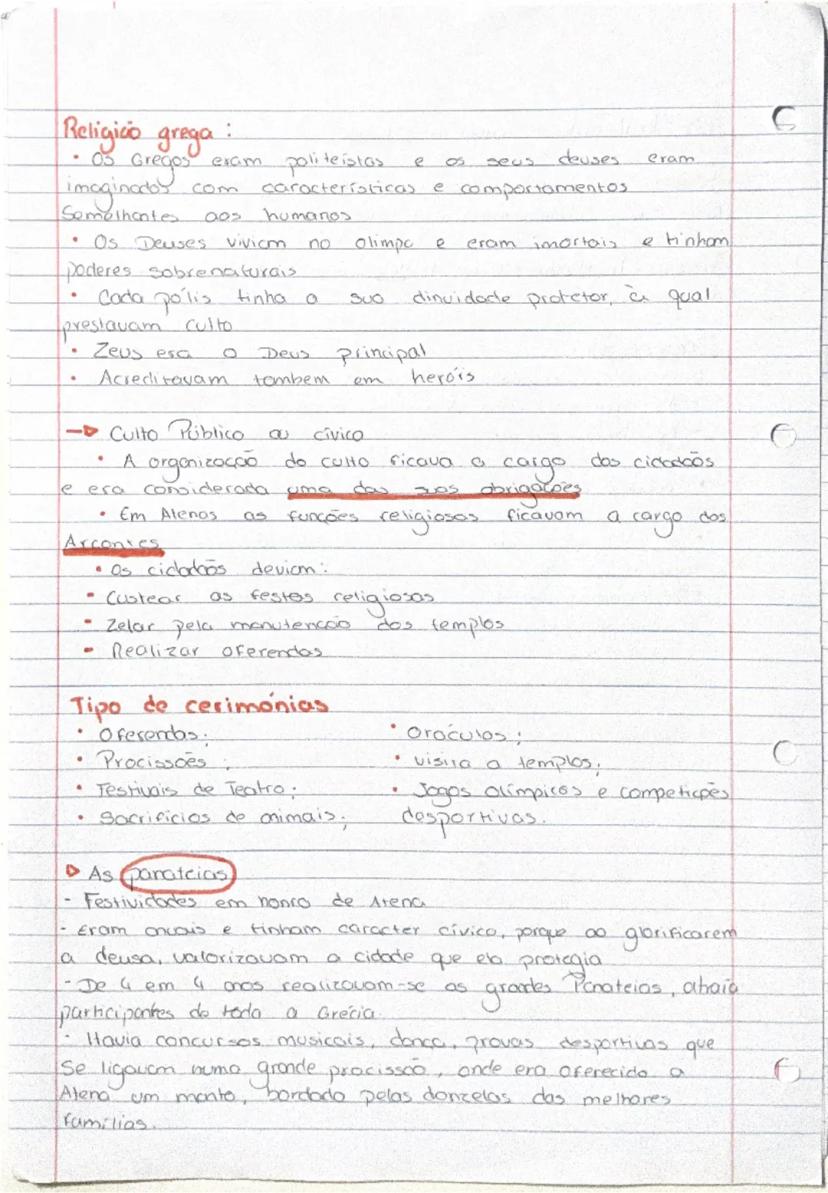 Religião grega :
• Os Gregos eram politeístas e os seus deuses eram
imaginados com características e comportamentos
Semelhantes aos humanos
• Os Deuses viviam no olimpo e eram imortais e tinham
poderes sobrenaturais
• Cada pólis tinha a sua dinuidade protetor, à qual
prestavam culto
• Zeus era o Deus principal
• Acreditavam tambem em heróis
→ Culto Público ou cívico
• A organização do culto ficava a cargo dos cidadãos
e era considerada uma das suas obrigações
• Em Atenas as funções religiosas ficavam a cargo dos
Arcontes
• Os cidadãos deviam:
• Custear as festas religiosas
• Zelar pela manutenção dos templos
• Realizar oferendas
Tipo de cerimónias
• Oferendas; • Oráculos;
• Procissões; • visita a templos;
• Festivais de Teatro; • Jogos Olímpicos e competições
• Sacrifícios de animais; desportivas.
▷ As panateias
- Festividades em honra de Atena
- Eram anuais e tinham caracter cívico, porque ao glorificarem
a deusa, valorizavam a cidade que ela protegia
- De 4 em 4 anos realizavam-se as grandes Panateias, atraía
participantes de toda a Grécia.
- Havia concursos musicais, dança, provas desportivas que
se ligavam numa grande procissão, onde era oferecido a
Atena um manto, bordado pelas donzelas das melhores
famílias.